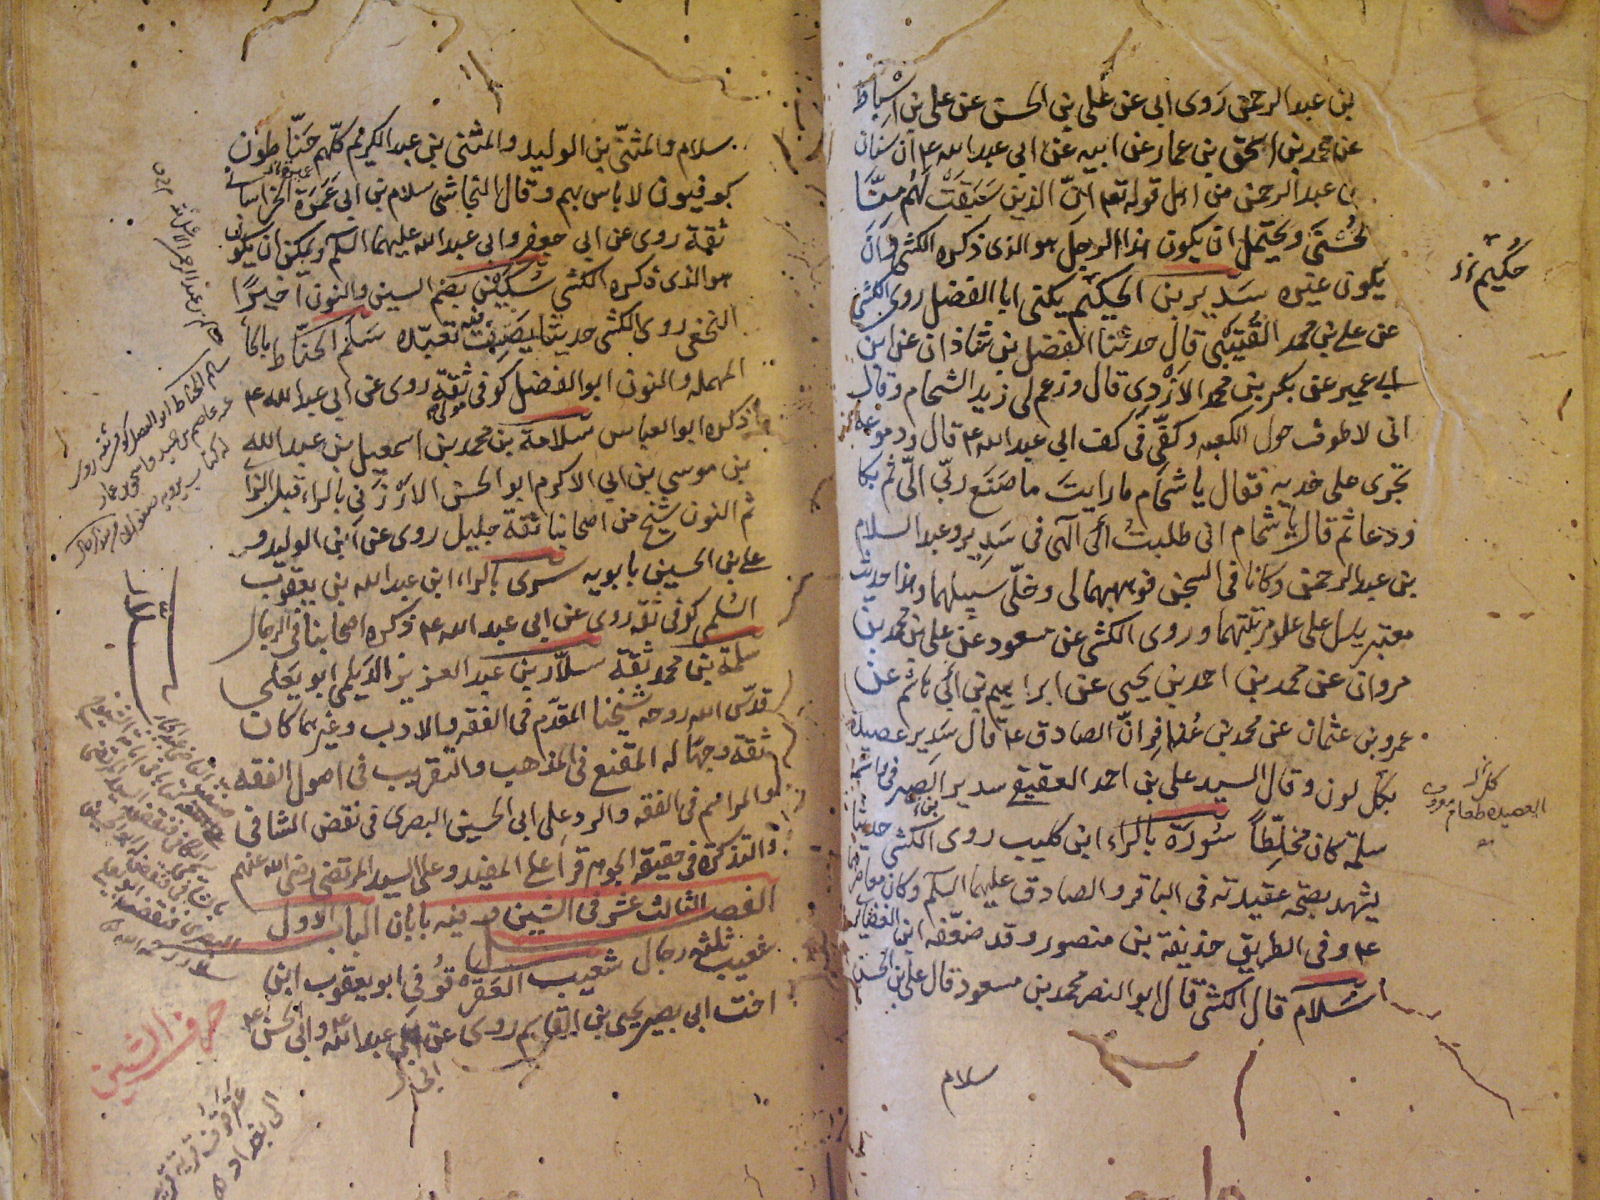 بن عبد الرحمن روى ابى عن على بن الحسن عن على بن اسباط
عن محمد بن اسحق بن عمار عن ابيه عن ابى عبد الله ع ان سنان
بن عبد الرحمن من اهل قوله تعم ان الذين سبقت لهم منا
الحسنى ويحتمل ان يكون هذا الرجل هو الذى ذكره الكشى وان
يكون غيره سدير بن الحكيم يكنى ابا الفضل روى الكشى
عن على بن محمد القتيبى قال حدثنا الفضل بن شاذان عن ابن
ابى عمير عن بكر بن محمد الازدى قال وزعم لى زيد الشحام وقال
انى لاطوف حول الكعبة وكفى فى كف ابى عبد الله ع قال ودموعه
تجرى على خديه فقال يا شحام ما رايت ما صنع ربى الى ثم بكا
ودعا ثم قال يا شحام انى طلبت الى الهى فى سدير وعبد السلام
بن عبد الرحمن وكانا فى السجن فوهبهما لى وخلى سبيلهما وهذا حديث
معتبر يدل على علو مرتبتهما وروى الكشى عن مسعود عن على بن محمد بن
مروان عن محمد بن احمد بن يحيى عن ابراهيم بن ابى هاشم عن
عمرو بن عثمان عن محمد بن عذافر ان الصادق ع قال سدير عصيدة
بكل لون وقال السيد على بن احمد العقيقى سدير الصيرفى
سلمة كان مخلطا سورة بالراء ابن كليب روى الكشى حديثا
يشهد بصحة عقيدته فى الباقر والصادق عليهما السلم وكان
ع وفى الطريق حذيفة بن منصور وقد ضعفه ابن الغضايرى
سلام قال الكشى قال ابو النصر محمد بن مسعود قال على بن الحسن
سلام
حكيم
كل
العصيدة طعام معروف
سلام والمثنى بن الوليد والمثنى بن عبد الكريم كلهم حناطون
كوفيون لا باس بهم وقال النجاشى سلام بن ابى عمرة الخراسانى
ثقة روى عن ابى جعفر وابى عبد الله عليهما السلم ويمكن ان يكون
هو الذى ذكره الكشى سكين بضم السين والنون اخيرا
النخعى روى الكشى حديثا يصف فيه تعبده سلم الحناط بالحا
المهملة والنون ابو الفضل كوفى ثقة روى عن ابى عبد الله ع
ذكره ابو العباس سلامة بن محمد بن اسمعيل بن عبد الله
بن موسى بن ابى الاكرم ابو الحسن الارزنى بالراء قبل الزا
ثم النون شيخ من اصحابنا ثقة جليل روى عن ابن الوليد و
على بن الحسين بابويه سرى بالراء ابن عبد الله بن يعقوب
السلمى كوفى ثقة روى عن ابى عبد الله ع ذكره اصحابنا فى الرجال
سلمة بن محمد ثقة سلار بن عبد العزيز الديلمى ابو يعلى
قدس الله روحه شيخنا المقدم فى الفقه والادب وغيرهما كان
ثقة وجها له المقنع فى المذهب والتقريب فى اصول الفقه
والمراسم فى الفقه والرد على ابى الحسين البصرى فى نقض الشافى
والتذكرة فى حقيقة الجوهر قرا على المفيد وعلى السيد المرتضى رضى الله عنهم
الفصل الثالث عشر فى الشين وفيه بابان الباب الاول
شعيب ثلثة رجال شعيب العقرقوفى ابو يعقوب ابن
اخت ابى بصير يحيى بن القاسم روى عن ابى عبد الله ع وابى الحسن ع
سلار
حرف الشين
عقرقوف قرية